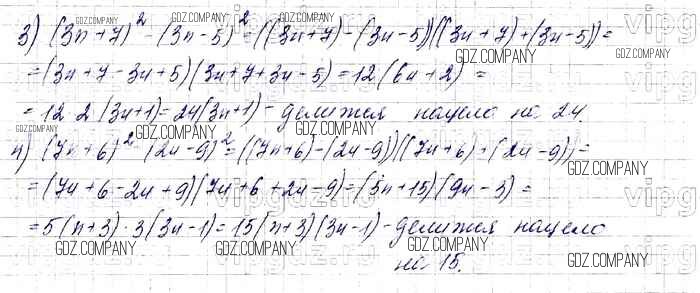 3) (3n+7)² - (3n-5)² = ((3n+7)-(3n-5))((3n+7)+(3n-5)) =
= (3n+7-3n+5)(3n+7+3n-5) = 12(6n+2) =
= 12·2(3n+1) = 24(3n+1) - делится нацело на 24.
4) (7n+6)² - (2n-9)² = ((7n+6)-(2n-9))((7n+6)+(2n-9)) =
= (7n+6-2n+9)(7n+6+2n-9) = (5n+15)(9n-3) =
= 5(n+3)·3(3n-1) = 15(n+3)(3n-1) - делится нацело
на 15.
GDZ.COMPANY